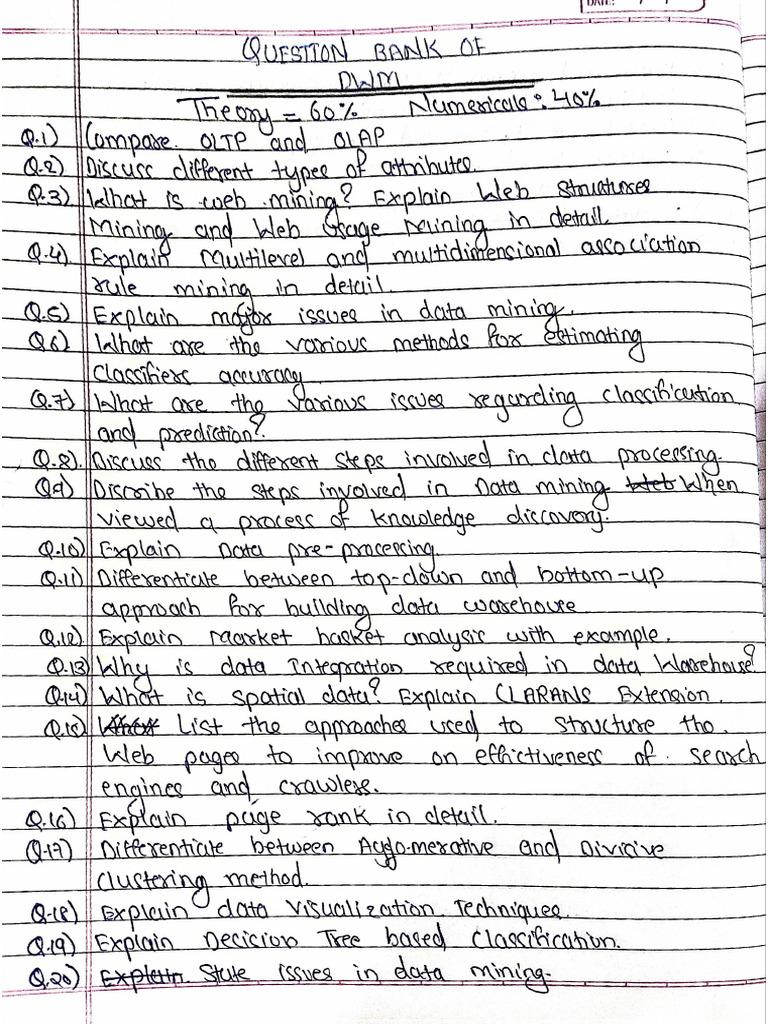 DATE:
QUESTION BANK OF
DWM
Theory = 60% Numericals: 40%
Q.1) Compare OLTP and OLAP
Q.2) Discuss different types of attributes.
Q.3) What is web mining? Explain Web Structures
Mining and Web Usage Mining in detail.
Q.4) Explain Multilevel and multidimensional association
rule mining in detail.
Q.5) Explain major issues in data mining.
Q6) What are the various methods for estimating
classifiers accuracy
Q.7) What are the various issues regarding classification
and prediction?
Q.8). Discuss the different steps involved in data processing.
Q9) Discribe the steps involved in Data mining Web When
viewed a process of knowledge discovery.
Q.10) Explain Data pre-processing.
Q.11) Differentiate between top-down and bottom-up
approach for building data warehouse
Q.12) Explain Market basket analysis with example.
Q.13) Why is data Integration required in data Warehouse?
Q.14) What is spatial data? Explain CLARANS Extension.
Q.15) What List the approaches used to structure the
Web pages to improve on effictiveness of search
engines and crawlers.
Q.16) Explain page rank in detail.
Q.17) Differentiate between Agglomerative and Divisive
clustering method.
Q.18) Explain data visualization Techniques.
Q.19) Explain Decision Tree based Classification.
Q.20) Explain. State issues in data mining.